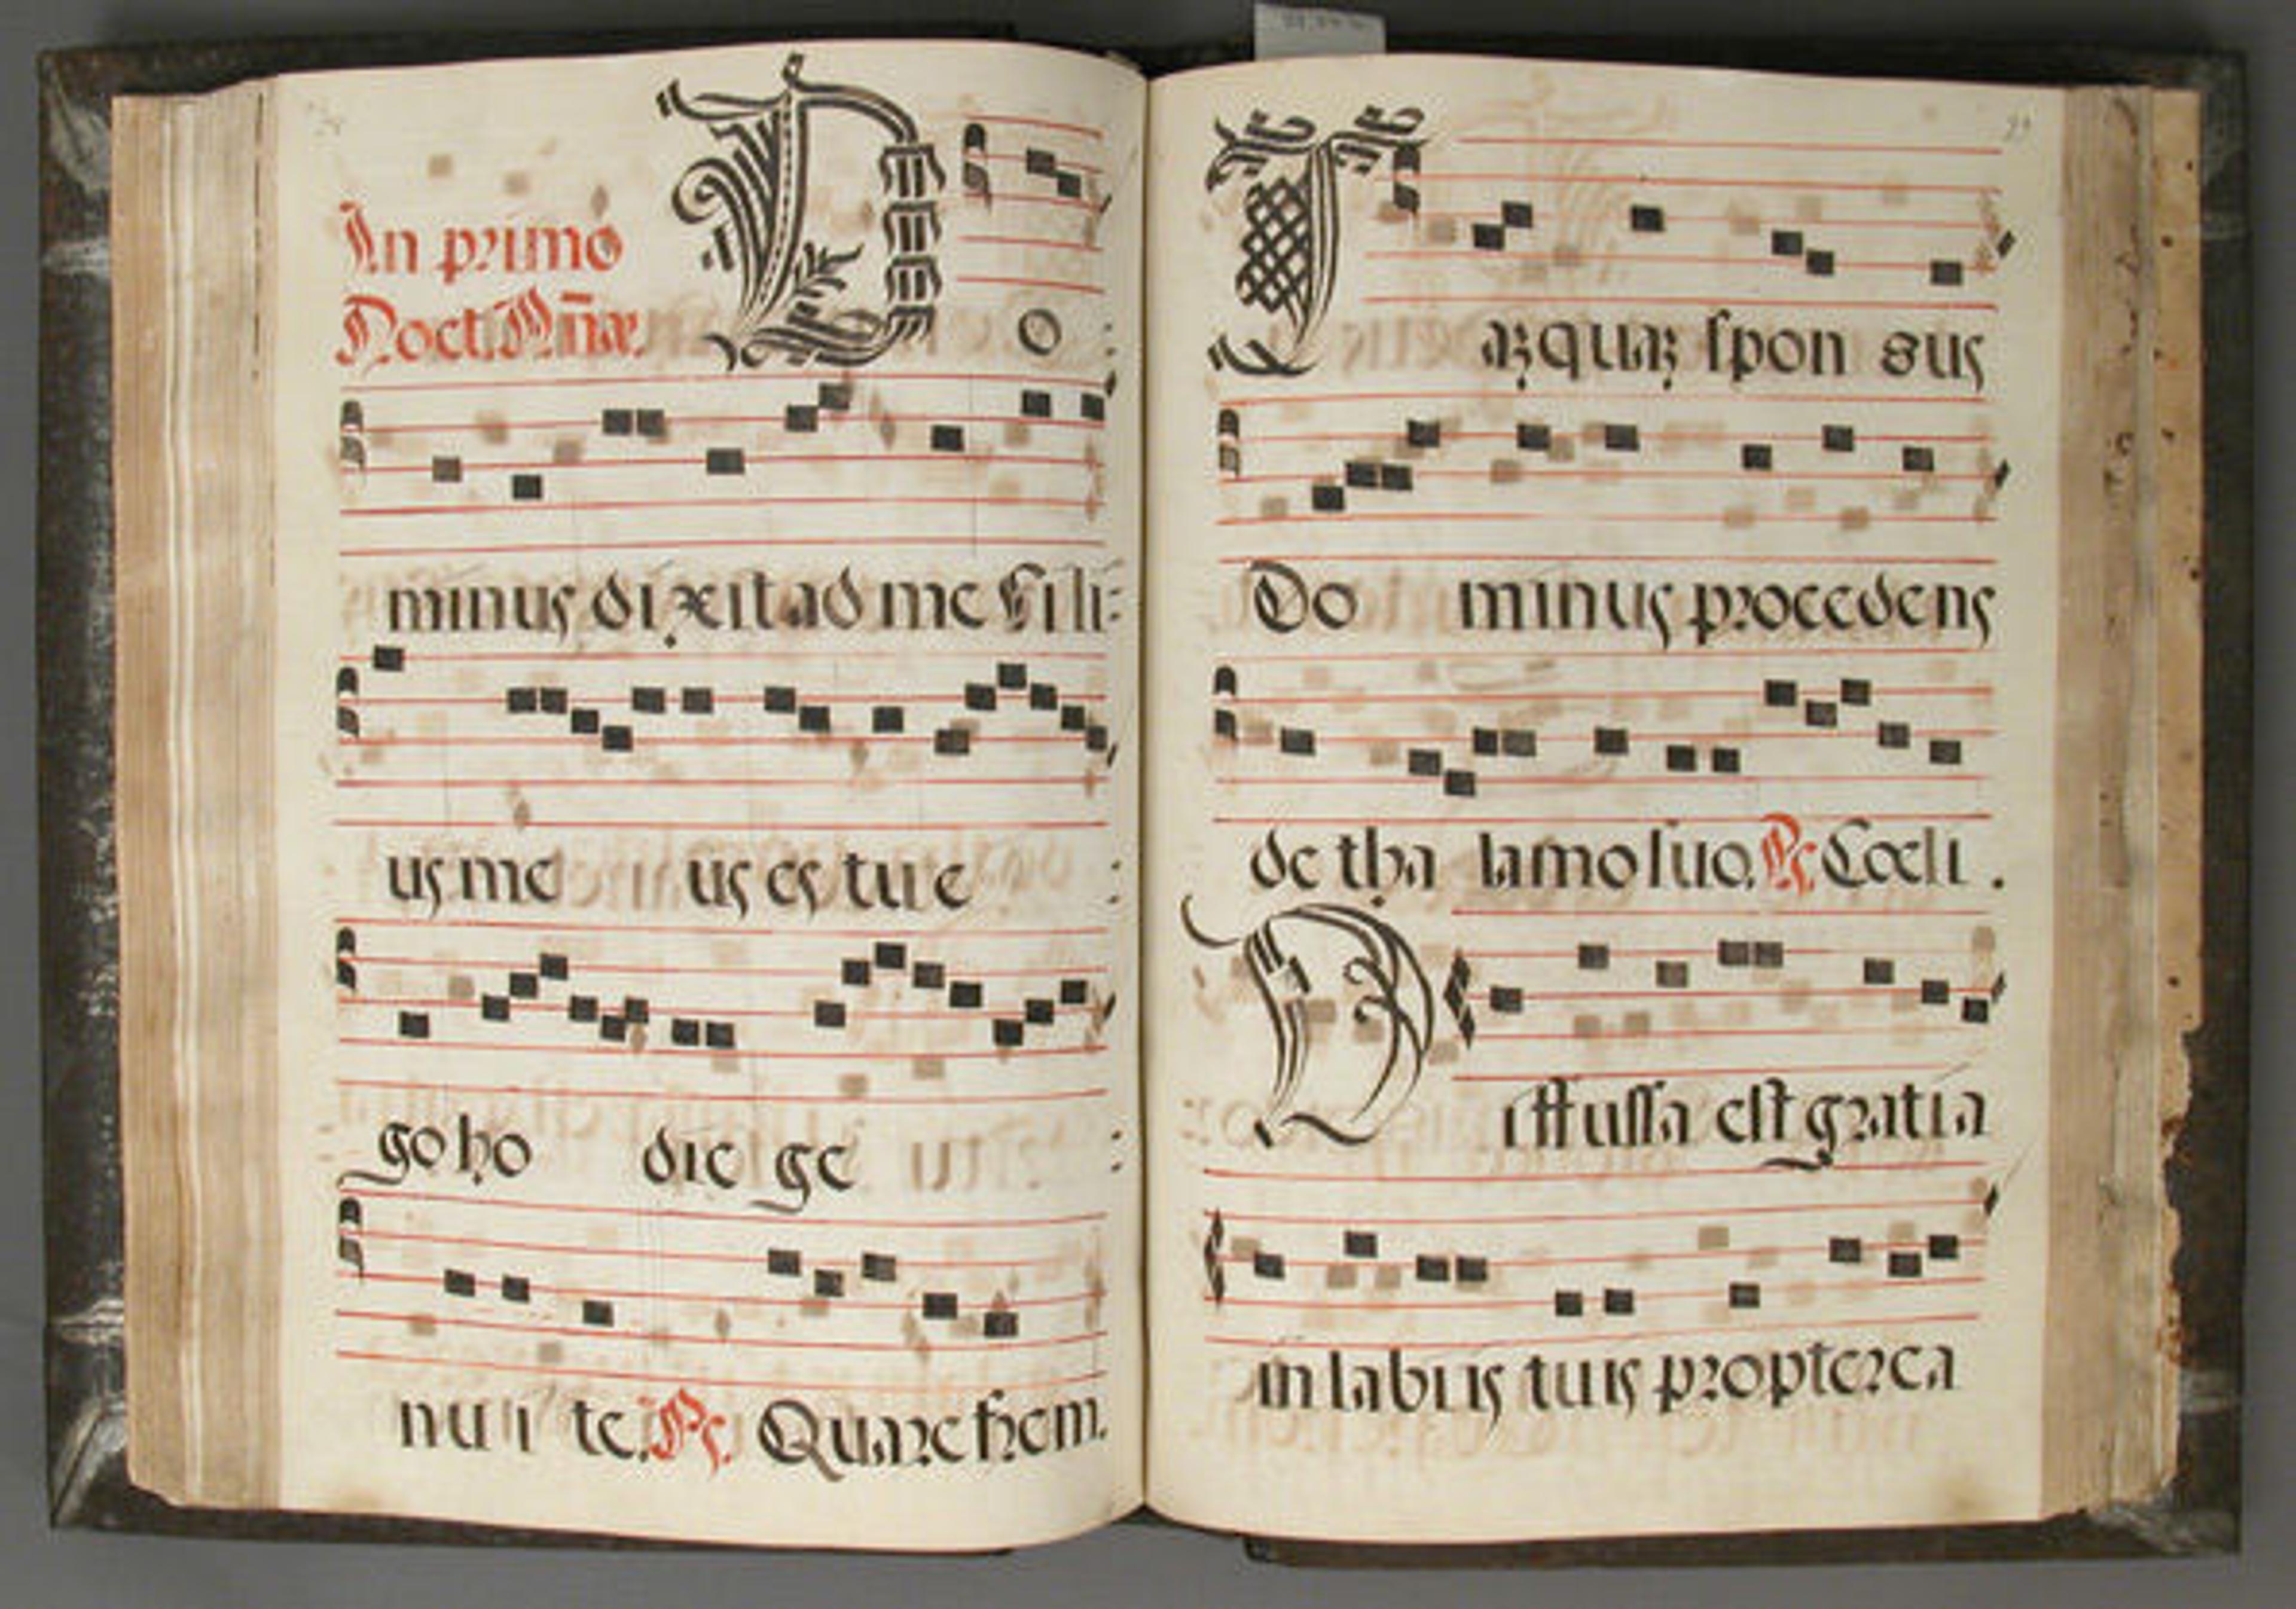 In primo
Noct. Añæ.
D o :
minus dixit ad me Fili:
us me us es tu e :
go ho die ge :
nu i te. R. Quare frem.
99
T azquaz spon sus
Do minus procedens
de tha lamo suo. Ps. Cœli.
D iffussa est gratia
in labiis tuis propterea